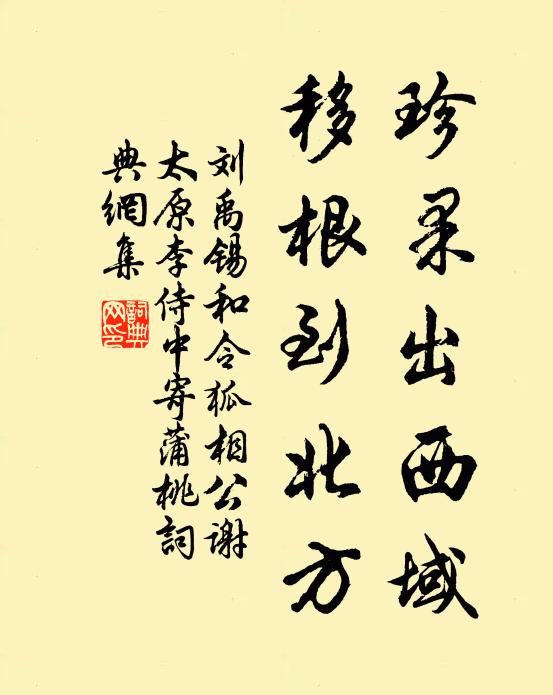 珍果出西域
移根到北方
刘禹锡和令狐相公谢
太原李侍中寄蒲桃詞
典網集
詞典網印